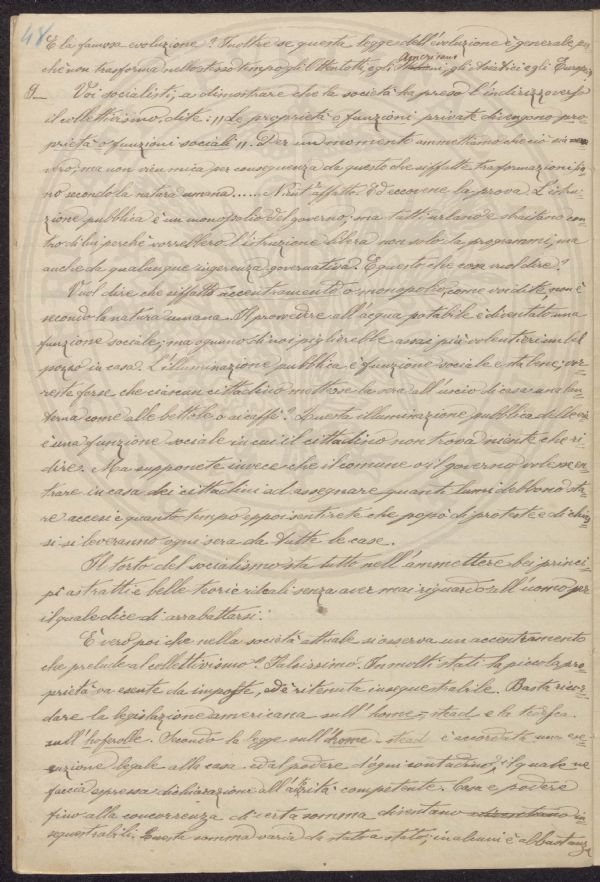 48
E la famosa evoluzione? Inoltre se questa legge dell'evoluzione è generale, per
chè non trasforma nello stesso tempo gli Ottentotti, e gli Americani, gli Asiatici e gli Europei?
9_ Voi socialisti, a dimostrare che la società ha preso l'indirizzo verso
il collettivismo, dite: "Le proprietà e funzioni private divengono pro=
prietà o funzioni sociali". Per un momento ammettiamo che ciò sia
vero; ma non vien mica per conseguenza da questo che siffatte trasformazioni sie=
no secondo la natura umana..... Nient'affatto. Ed eccovene la prova. L'istru=
zione pubblica è un monopolio del governo, ma tutti urlano e straitano con=
tro di lui perchè vorrebbero l'istruzione libera non solo da programmi, ma
anche da qualunque ingerenza governativa. E questo che cosa vuol dire?
Vuol dire che siffatto accentramento, o monopolio, come voi dite non è
secondo la natura umana. Il provvedere all'acqua potabile è diventato una
funzione sociale; ma ognuno di voi piglierebbe assai più volentieri un bel
pozzo in casa. L'illuminazione pubblica è funzione sociale e sta bene; vor=
reste forse che ciascun cittadino mettesse la sera all'uscio di casa una lan=
terna come alle bettole o ai caffè? Questa illuminazione pubblica delle vie
è una funzione sociale in cui il cittadino non trova niente che ri=
dire. Ma supponete invece che il comune o il governo volesse en=
trare in casa dei cittadini ad assegnare quanti lumi debbono sta=
re accesi e quanto tempo e poi sentirete che popò di proteste e di chias=
si si leveranno ogni sera da tutte le case.
Il torto del socialismo sta tutto nell'ammettere bei princi=
pî astratti e belle teorie ideali senza aver mai riguardo all'uomo per
il quale dice di arrabattarsi.
È vero poi che nella società attuale si osserva un accentramento
che prelude al collettivismo? Falsissimo. In molti stati la piccola pro=
prietà va esente da imposte, ed è ritenuta insequestrabile. Basta ricor=
dare la legislazione americana sull'home-stead e la tedesca
sull'hoferolle. Secondo la legge sull'home-stead è accordata una ese=
nzione legale alla casa ed al podere d'ogni contadino, il quale ne
faccia espressa dichiarazione all'autorità competente. Casa e podere
fino alla concorrenza di certa somma diventano in=
sequestrabili. Questa somma varia da stato a stato; in alcuni è abbastanza